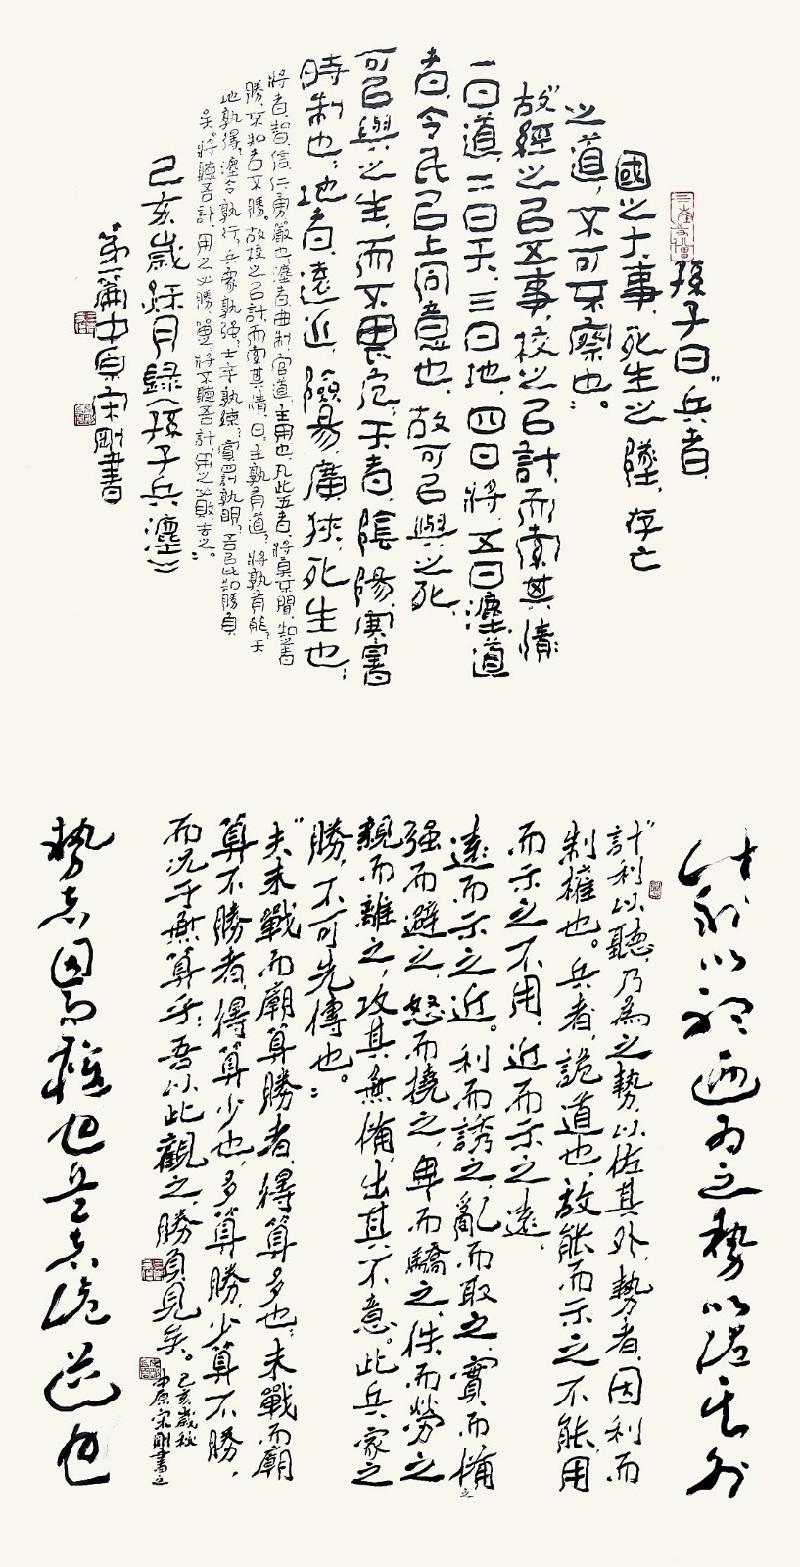 孫子曰：兵者，
國之大事，死生之墬，存亡
之道，不可不察也。
故經之㠯五事，校之㠯計，而索其情
一曰道，二曰天，三曰地，四曰將，五曰灋。道
者，令民㠯上同意也，故可㠯與之死，
可㠯與之生，而不畏危，天者，陰陽、寒暑、
時制也；地者，遠近、險易、廣狹、死生也；
將者，智、信、仁、勇、嚴也；灋者，曲制、官道、主用也。凡此五者，將莫不聞，知者
勝，不知者不勝。故校之㠯計，而索其情，曰：主孰有道，將孰有能，天
地孰得，灋令孰行，兵衆孰強，士卒孰練，賞罰孰明，吾㠯此知勝負
矣。將聽吾計，用之必勝，畱；將不聽吾計，用之必敗，去之。
己亥歲秋月錄《孫子兵灋》
第一篇中原宋剛書
計利以聽迺為之勢以佐其外
計利以聽，乃為之勢，以佐其外，勢者，因利而
制權也。兵者，詭道也，故能而示之不能，用
而示之不用，近而示之遠，
遠而示之近。利而誘之，亂而取之，實而備之，
強而避之，怒而撓之，卑而驕之，佚而勞之，
親而離之，攻其無備，出其不意。此兵家之
勝，不可先傳也。
夫未戰而廟算勝者，得算多也；未戰而廟
算不勝者，得算少也，多算勝，少算不勝，
而況于無算乎；吾以此觀之，勝負見矣。
己亥歲秋
中原宋剛書之
勢者因而權也兵者詭道也